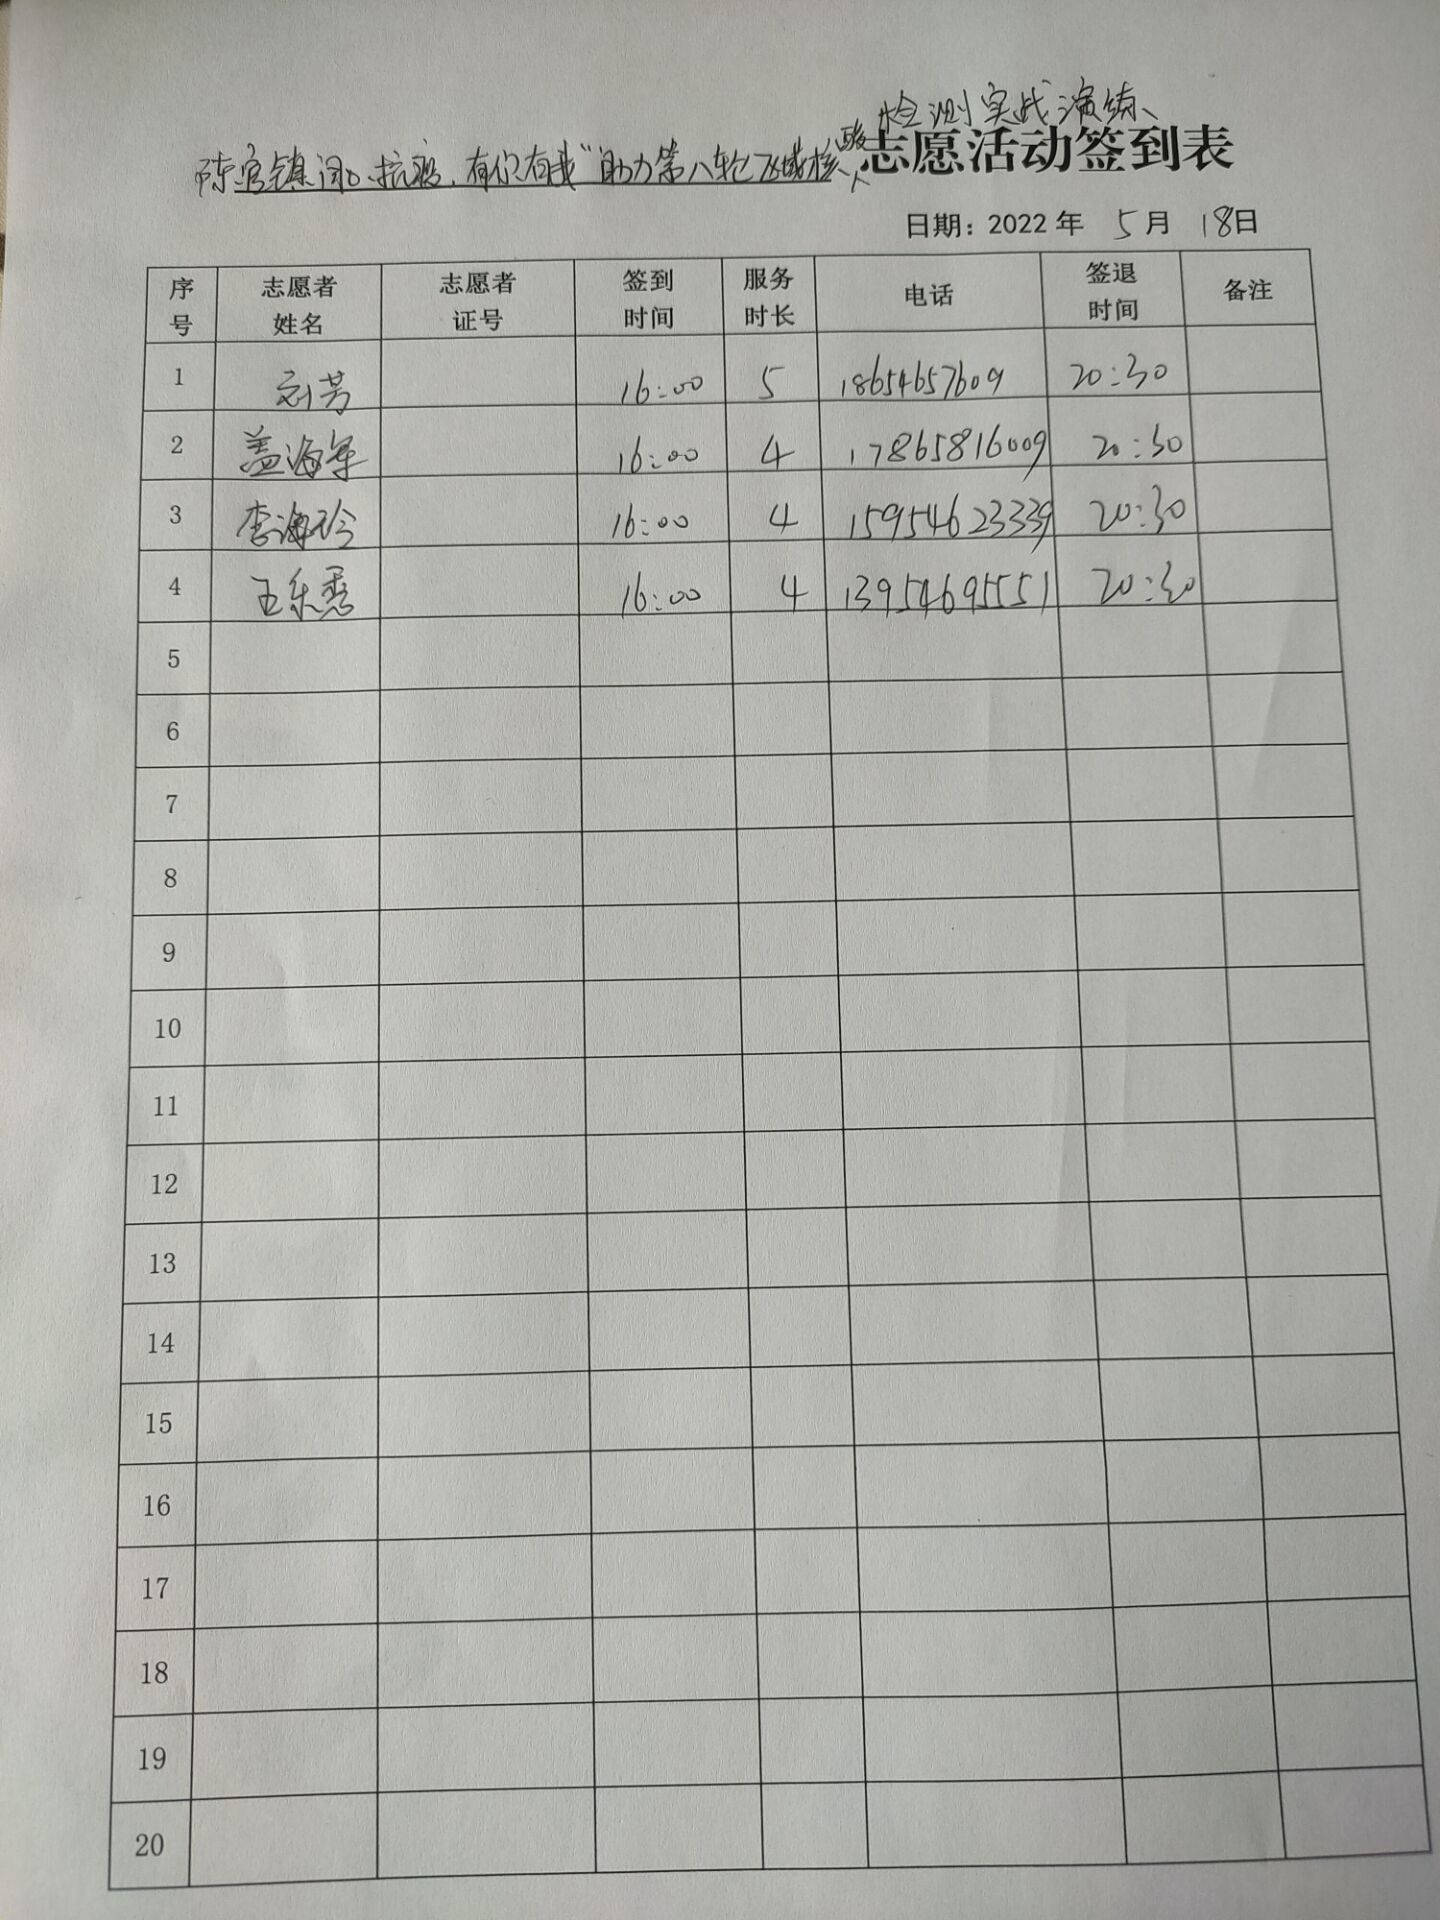 检测实战演练、
陈官镇同心抗疫,有你有我"助力第八轮区域核酸志愿活动签到表
日期: 2022 年 5 月 18日
序号 志愿者姓名 志愿者证号 签到时间 服务时长 电话 签退时间 备注
1 刘芳 16:00 5 18654657609 20:30
2 盖海军 16:00 4 17865816009 20:30
3 李海玲 16:00 4 15954623339 20:30
4 王乐秀 16:00 4 13954695551 20:30
5
6
7
8
9
10
11
12
13
14
15
16
17
18
19
20